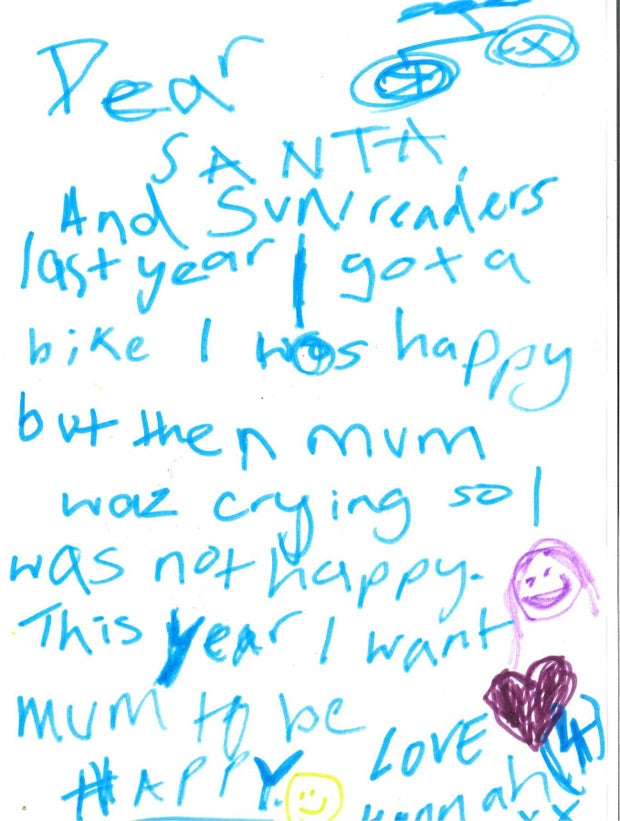 Dear
SANTA,
And SUN readers
last year I got a
bike I was happy
but then mum
waz crying so I
was not happy.
This year I want
mum to be
HAPPY.
LOVE
Hannah (4)
xx